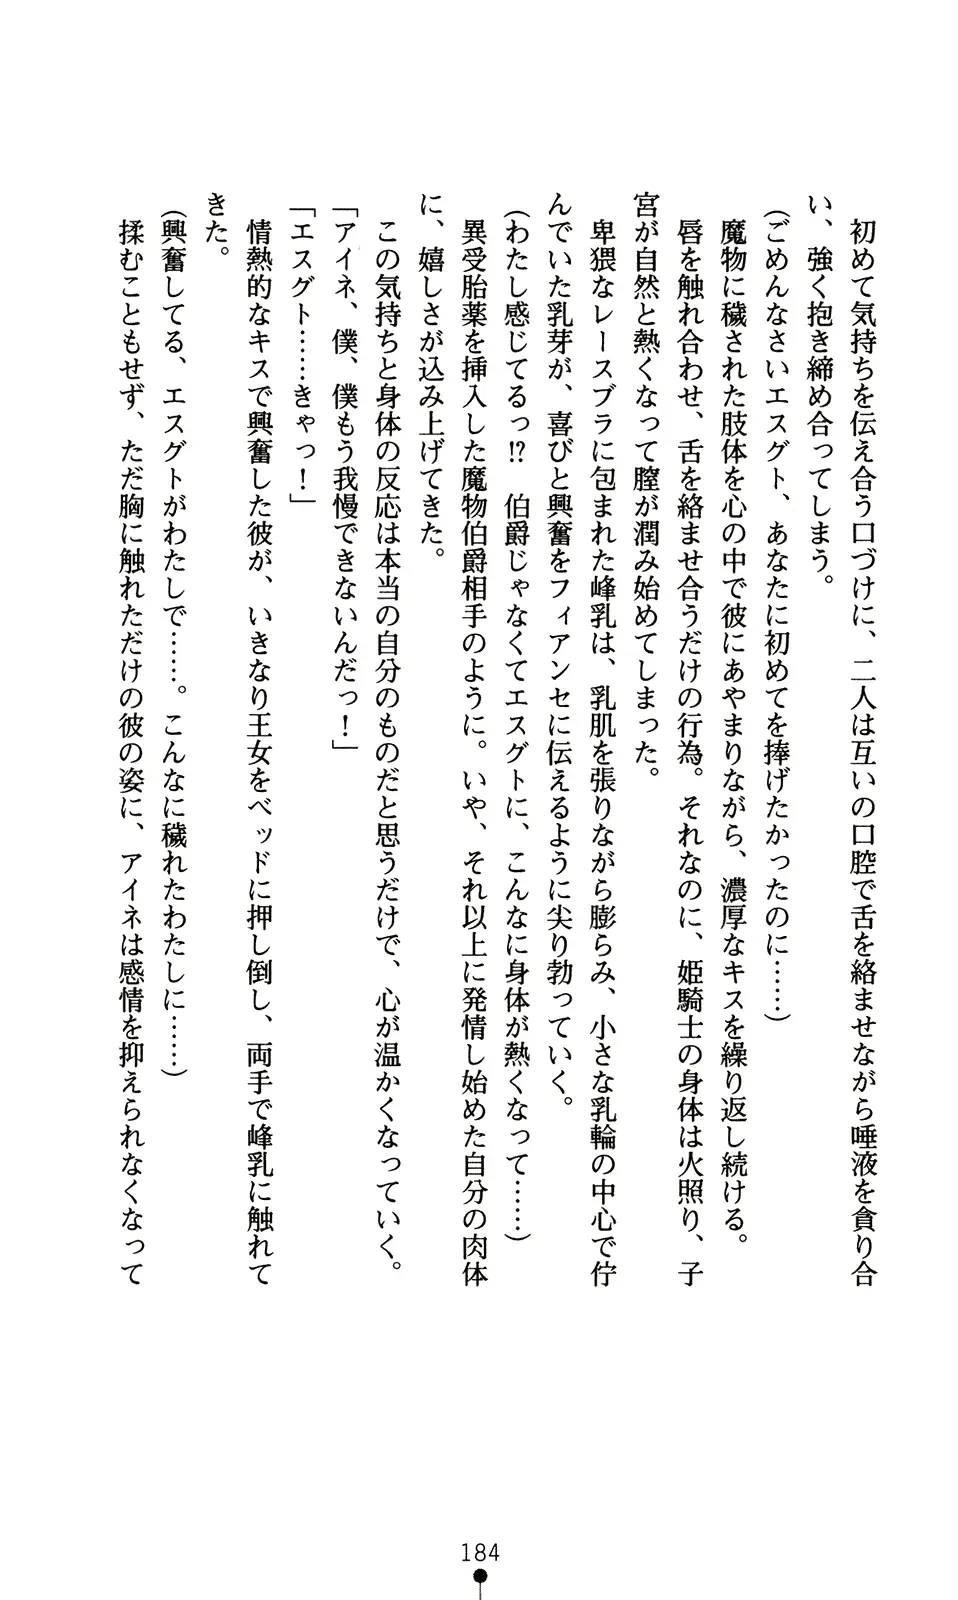 初めて気持ちを伝え合う口づけに、二人は互いの口腔で舌を絡ませながら唾液を貪り合
い、強く抱き締め合ってしまう。
（ごめんなさいエスグト、あなたに初めてを捧げたかったのに……）
　魔物に穢された肢体を心の中で彼にあやまりながら、濃厚なキスを繰り返し続ける。
　唇を触れ合わせ、舌を絡ませ合うだけの行為。それなのに、姫騎士の身体は火照り、子
宮が自然と熱くなって膣が潤み始めてしまった。
　卑猥なレースブラに包まれた峰乳は、乳肌を張りながら膨らみ、小さな乳輪の中心で佇
んでいた乳芽が、喜びと興奮をフィアンセに伝えるように尖り勃っていく。
（わたし感じてるっ!?　伯爵じゃなくてエスグトに、こんなに身体が熱くなって……）
　異受胎薬を挿入した魔物伯爵相手のように。いや、それ以上に発情し始めた自分の肉体
に、嬉しさが込み上げてきた。
　この気持ちと身体の反応は本当の自分のものだと思うだけで、心が温かくなっていく。
「アイネ、僕、僕もう我慢できないんだっ！」
「エスグト……きゃっ！」
　情熱的なキスで興奮した彼が、いきなり王女をベッドに押し倒し、両手で峰乳に触れて
きた。
（興奮してる、エスグトがわたしで……。こんなに穢れたわたしに……）
　揉むこともせず、ただ胸に触れただけの彼の姿に、アイネは感情を抑えられなくなって
184